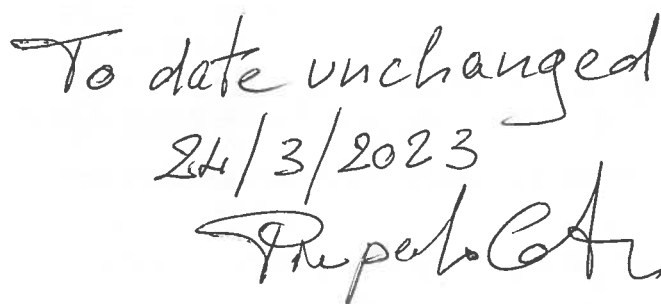 To date unchanged
24/3/2023